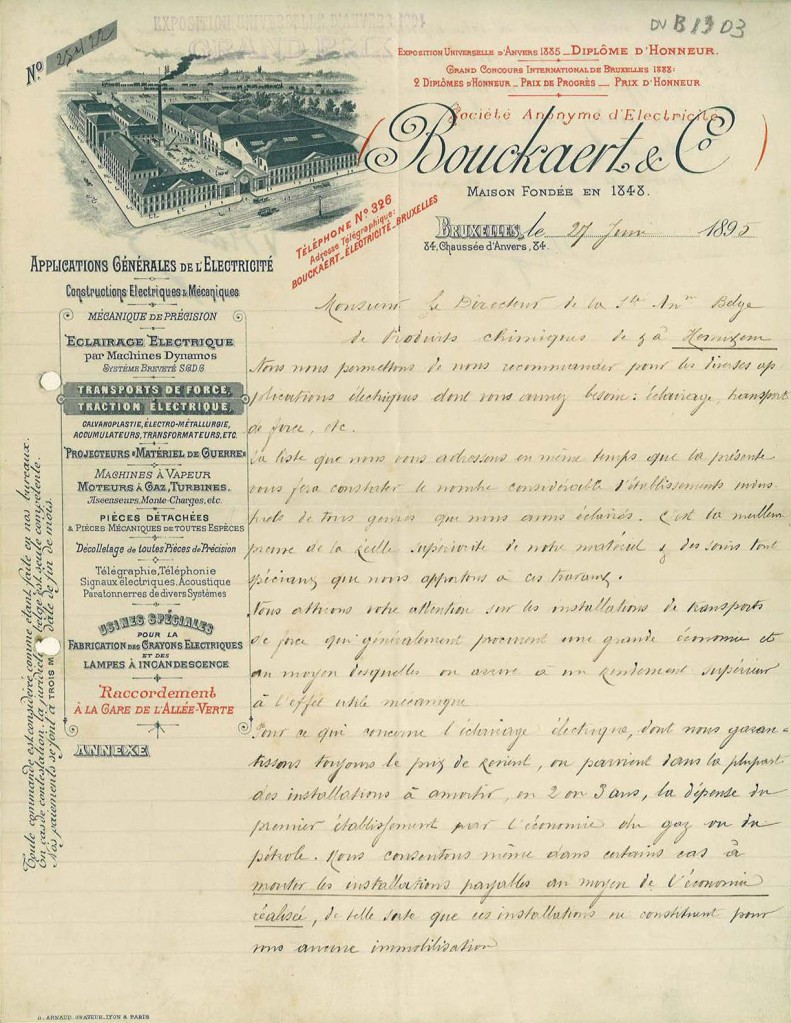 DV B 19 03
No
Exposition Universelle d'Anvers 1885 _ Diplôme d'Honneur.
Grand Concours International de Bruxelles 1888:
2 Diplômes d'Honneur _ Prix de Progrès _ Prix d'Honneur
Société Anonyme d'Electricité
(Bouckaert & Co)
Maison Fondée en 1848.
Téléphone No 326
Adresse Télégraphique:
Bouckaert_Électricité_Bruxelles
Bruxelles, le 27 Juin 1895
84, Chaussée d'Anvers, 84.
Applications Générales de l'Electricité
Constructions Electriques & Mécaniques
Mécanique de Précision
Eclairage Electrique
par Machines Dynamos
Système Breveté S.G.D.G
Transports de Force,
Traction Électrique,
Galvanoplastie, Électro-Métallurgie,
Accumulateurs, Transformateurs, etc.
Projecteurs «Matériel de Guerre»
Machines à Vapeur
Moteurs à Gaz, Turbines.
Ascenseurs, Monte-Charges, etc.
Pièces Détachées
& Pièces Mécaniques de Toutes Espèces
Décolletage de toutes Pièces de Précision
Télégraphie, Téléphonie
Signaux électriques, Acoustique
Paratonnerres de divers Systèmes
Usines Spéciales
pour la
Fabrication des Crayons Electriques
et des
Lampes à Incandescence
Raccordement
à la Gare de l'Allée-Verte
Annexe
Toute commande est considérée comme étant faite en nos bureaux.
En cas de contestation, la juridiction belge est seule compétente.
Nos paiements se font à TROIS M date de fin de mois.
Monsieur le Directeur de la Sté Anme Belge
de Produits chimiques de à
Nous nous permettons de nous recommander pour les diverses ap
plications électriques dont vous auriez besoin: éclairage, transport
de force, etc.
La liste que nous vous adressons en même temps que la présente
vous fera constater le nombre considérable d'établissements indus
triels de tous genres que nous avons éclairés. C'est la meilleure
preuve de la réelle supériorité de notre matériel & des soins tout
spéciaux que nous apportons à ces travaux.
Nous attirons votre attention sur les installations de transports
de force qui généralement procurent une grande économie et
au moyen desquelles on arrive à un rendement supérieur
à l'effet utile mécanique
Pour ce qui concerne l'éclairage électrique, dont nous garan-
tissons toujours le prix de revient, on parvient dans la plupart
des installations à amortir, en 2 ou 3 ans, la dépense du
premier établissement par l'économie du gaz ou du
pétrole. Nous consentons même dans certains cas à
monter les installations payables au moyen de l'économie
réalisée, de telle sorte que ces installations ne constituent pour
vous aucune immobilisation
A. Arnaud, Graveur, Lyon & Paris